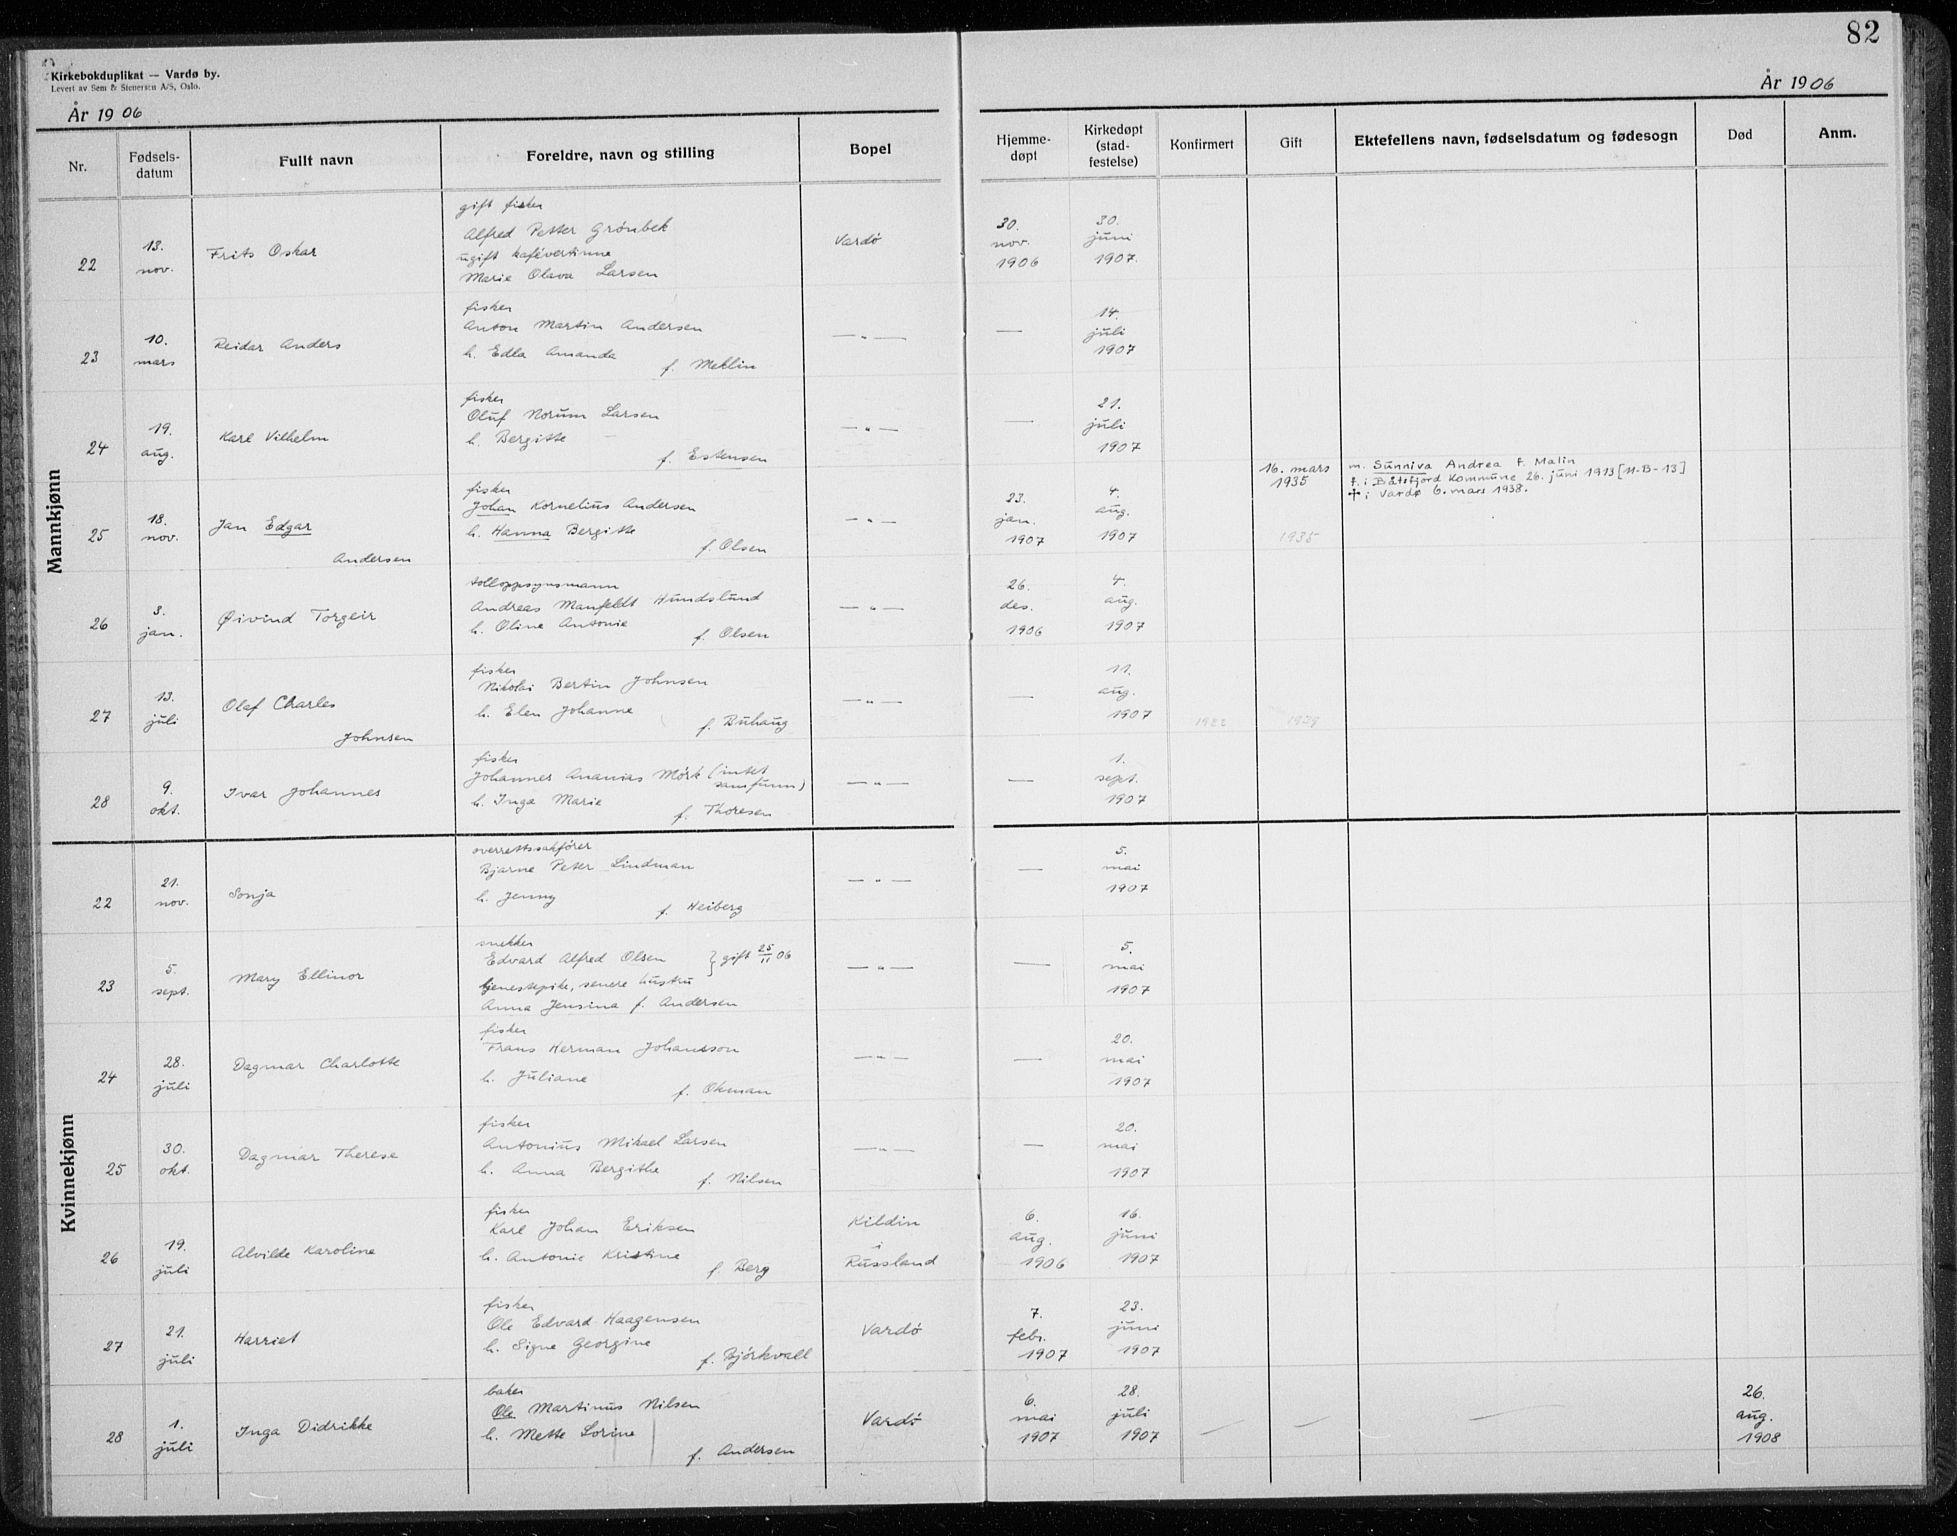 82
Kirkebokduplikat — Vardø by.
Levert av Sem & Stenersen A/S, Oslo.
År 1906
År 1906
Nr.
Fødsels-
datum
Fullt navn
Foreldre, navn og stilling
Bopel
Hjemme-
døpt
Kirkedøpt
(stad-
festelse)
Konfirmert
Gift
Ektefellens navn, fødselsdatum og fødesogn
Død
Anm.
Mannkjønn
22
13.
nov.
Frits Oskar
gift fisker
Alfred Petter Grønbek
ugift kafévertinne
Marie Olava Larsen
Vardø
30.
nov.
1906
30.
juni
1907.
23
10.
mars
Reidar Anders
fisker
Anton Martin Andersen
h. Edla Amanda
f. Meklin
— „ —
—
14.
juli
1907
24
19.
aug.
Karl Vilhelm
fisker
Oluf Norum Larsen
h. Bergitte
f. Estensen
— „ —
—
21.
juli
1907
25
18.
nov.
Jan Edgar
Andersen
fisker
Johan Kornelius Andersen
h. Hanna Bergitte
f. Olsen
— „ —
23.
jan.
1907
4.
aug.
1907
16. mars
1935
1935
m. Sunniva Andrea f. Malin
f. i Båtsfjord Kommune 26. juni 1913 [11-B-13]
✝ i Vardø 6. mars 1938.
26
3.
jan.
Øivind Torgeir
tolloppsynsmann
Andreas Manfeldt Hundslund
h. Oline Antonie
f. Olsen
— „ —
26.
des.
1906
4.
aug.
1907
27
13.
juli
Olaf Charles
Johnsen
fisker
Nikolai Bertin Johnsen
h. Elen Johanne
f. Buhaug
— „ —
—
11.
aug.
1907
1922
1929
28
9.
okt.
Ivar Johannes
fisker
Johannes Ananias Mørk (intet
samfunn)
h. Inga Marie
f. Thoresen
— „ —
—
1.
sept.
1907
Kvinnekjønn
22
21.
nov.
Sonja
overrettssakfører
Bjarne Peter Lindman
h. Jenny
f. Heiberg
— „ —
—
5.
mai
1907
23
5.
sept.
Mary Ellinor
snekker
Edvard Alfred Olsen } gift 25/11 06
tjenestepike, senere hustru
Anna Jensina f. Andersen
— „ —
—
5.
mai
1907
24
28.
juli
Dagmar Charlotte
fisker
Frans Herman Johansson
h. Juliane
f. Okman
— „ —
—
20.
mai
1907
25
30.
okt.
Dagmar Therese
fisker
Antonius Mikael Larsen
h. Anna Bergithe
f. Nilsen
— „ —
—
20.
mai
1907
26
19.
juli
Alvilde Karoline
fisker
Karl Johan Eriksen
h. Antonie Kristine
f. Berg
Kildin
i
Russland
6.
aug.
1906
16.
juni
1907
27
21.
juli
Harriet
fisker
Ole Edvard Haagensen
h. Signe Georgine
f. Björkvall
Vardø
7.
febr.
1907
23.
juni
1907
28
1.
juli
Inga Didrikke
baker
Ole Martinus Nilsen
h. Mette Lorine
f. Andersen
Vardø
6.
mai
1907
28.
juli
1907
—
—
—
26.
aug.
1908